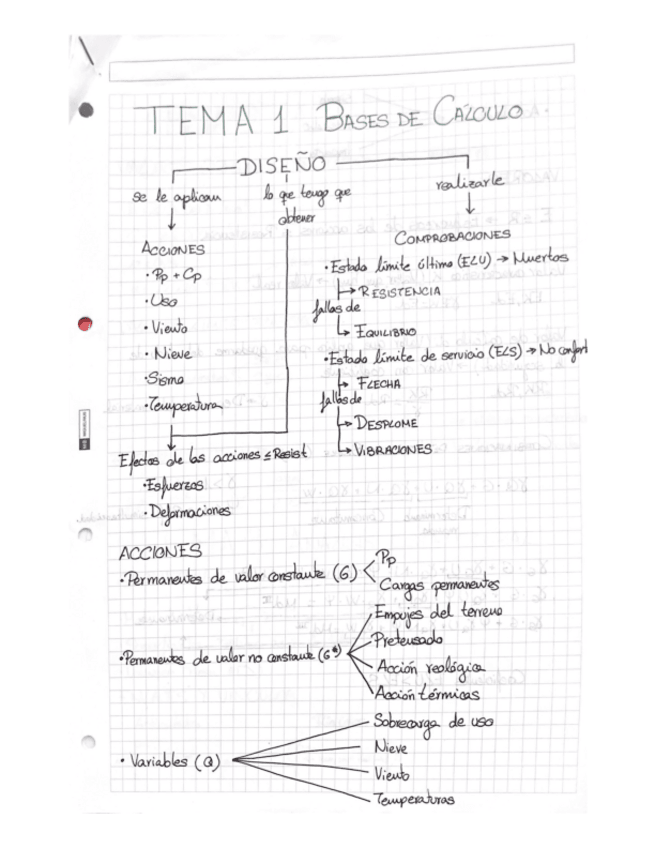 TEMA 1 BASES DE CÁLCULO
DISEÑO
se le aplican
lo que tengo que obtener
realizarle
ACCIONES
· Pp + Cp
· Uso
· Viento
· Nieve
· Sismo
· Temperatura
COMPROBACIONES
· Estado límite último (ELU) → Muertos
fallos de
→ RESISTENCIA
→ EQUILIBRIO
· Estado límite de servicio (ELS) → No confort
fallos de
→ FLECHA
→ DESPLOME
→ VIBRACIONES
Efectos de las acciones ≤ Resist
· Esfuerzos
· Deformaciones
ACCIONES
· Permanentes de valor constante (G)
Pp
Cargas permanentes
· Permanentes de valor no constante (G*)
Empujes del terreno
Pretensado
Acción reológica
Acción térmicas
· Variables (Q)
Sobrecarga de uso
Nieve
Viento
Temperaturas